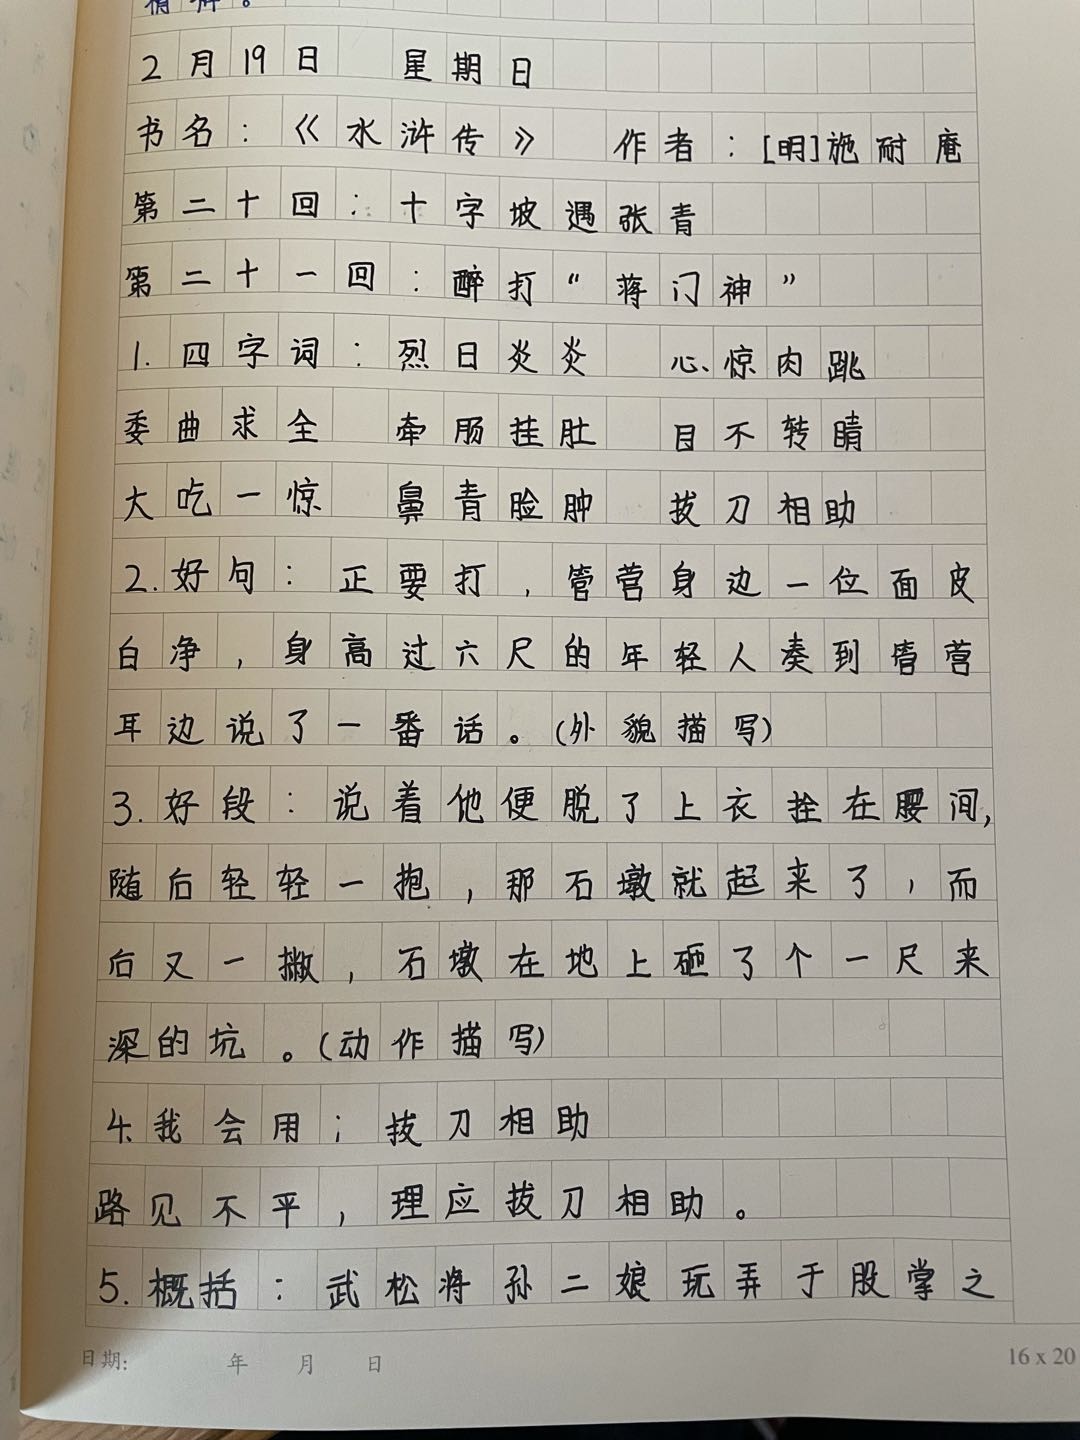 2月19日 星期日
书名：《水浒传》 作者：[明]施耐庵
第二十回：十字坡遇张青
第二十一回：醉打“蒋门神”
1.四字词：烈日炎炎 心惊肉跳
委曲求全 牵肠挂肚 目不转睛
大吃一惊 鼻青脸肿 拔刀相助
2.好句：正要打，管营身边一位面皮
白净，身高过六尺的年轻人凑到管营
耳边说了一番话。(外貌描写)
3.好段：说着他便脱了上衣拴在腰间,
随后轻轻一抱，那石墩就起来了，而
后又一撇，石墩在地上砸了个一尺来
深的坑。(动作描写)
4.我会用；拔刀相助
路见不平，理应拔刀相助。
5.概括：武松将孙二娘玩弄于股掌之
日期: 年 月 日
16 x 20